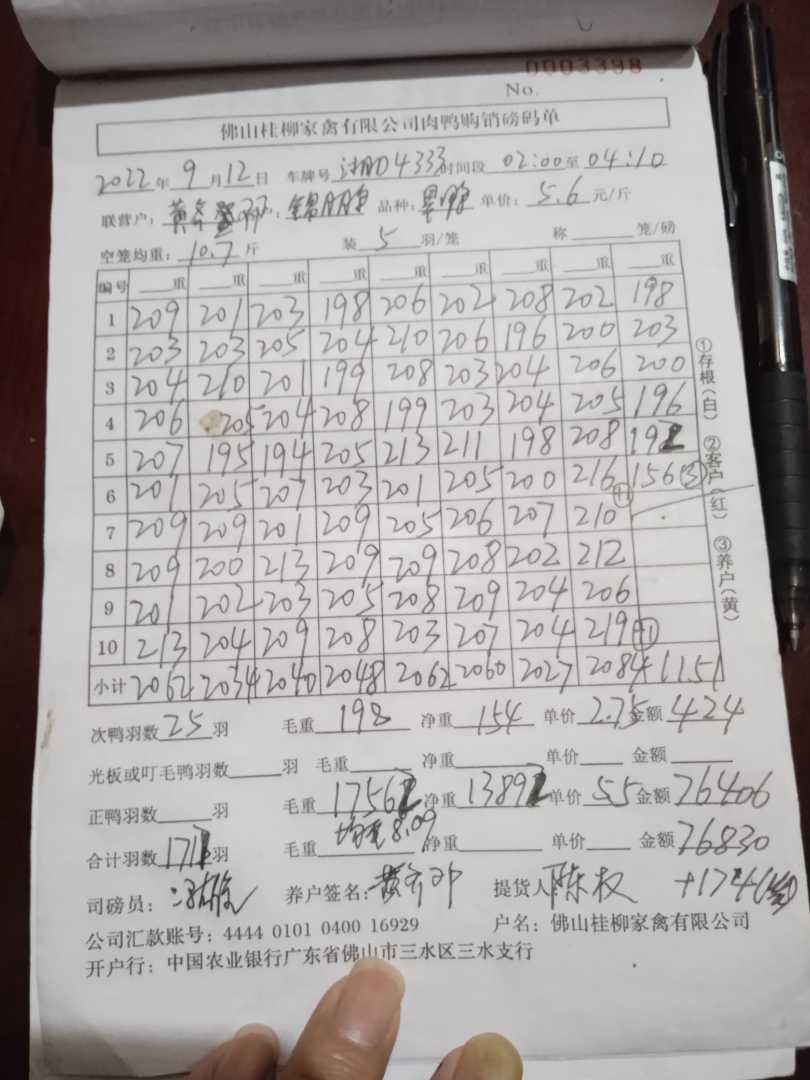 0003398
No.
佛山桂柳家禽有限公司肉鸭购销磅码单
2022年9月12日 车牌号 4333 时间段 02:00至04:10
联营户: 黄 品种: 单价: 5.6 元/斤
空笼均重: 10.7斤 装5羽/笼 称 笼/磅
编号 重 重 重 重 重 重 重 重 重
1 209 201 203 198 206 202 208 202 198
2 203 203 205 204 210 206 196 200 203
3 204 210 201 199 208 203 204 206 200
4 206 205 204 208 199 203 204 205 196
5 207 195 194 205 213 211 198 208 192
6 201 205 207 203 201 205 200 216 +1 156(3)
7 209 209 201 209 205 206 207 210
8 209 200 213 209 209 208 202 212
9 201 202 203 205 208 209 204 206
10 213 204 209 208 203 207 204 219 +1
小计 2062 2034 2040 2048 2062 2060 2027 2084 1151
①存根(白) ②客户(红) ③养户(黄)
次鸭羽数25羽 毛重198 净重154 单价2.75 金额424
光板或叮毛鸭羽数 羽 毛重 净重 单价 金额
正鸭羽数 羽 毛重17562 净重13892 单价5.5 金额76406
均重8.09
合计羽数171 羽 毛重 净重 单价 金额76830
司磅员: 养户签名: 黄 提货人: 陈权 +174
公司汇款账号: 4444 0101 0400 16929 户名: 佛山桂柳家禽有限公司
开户行: 中国农业银行广东省佛山市三水区三水支行